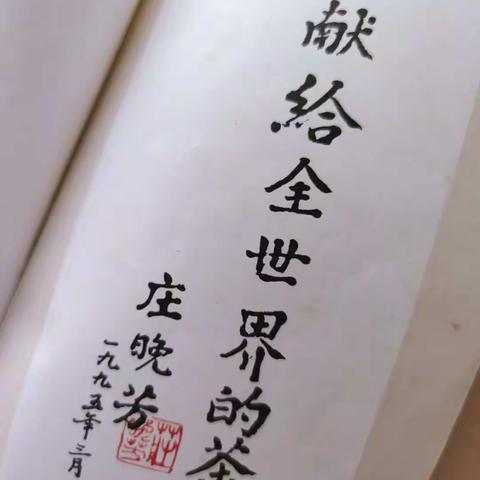 献給全世界的茶
庄晚芳
一九九五年三月